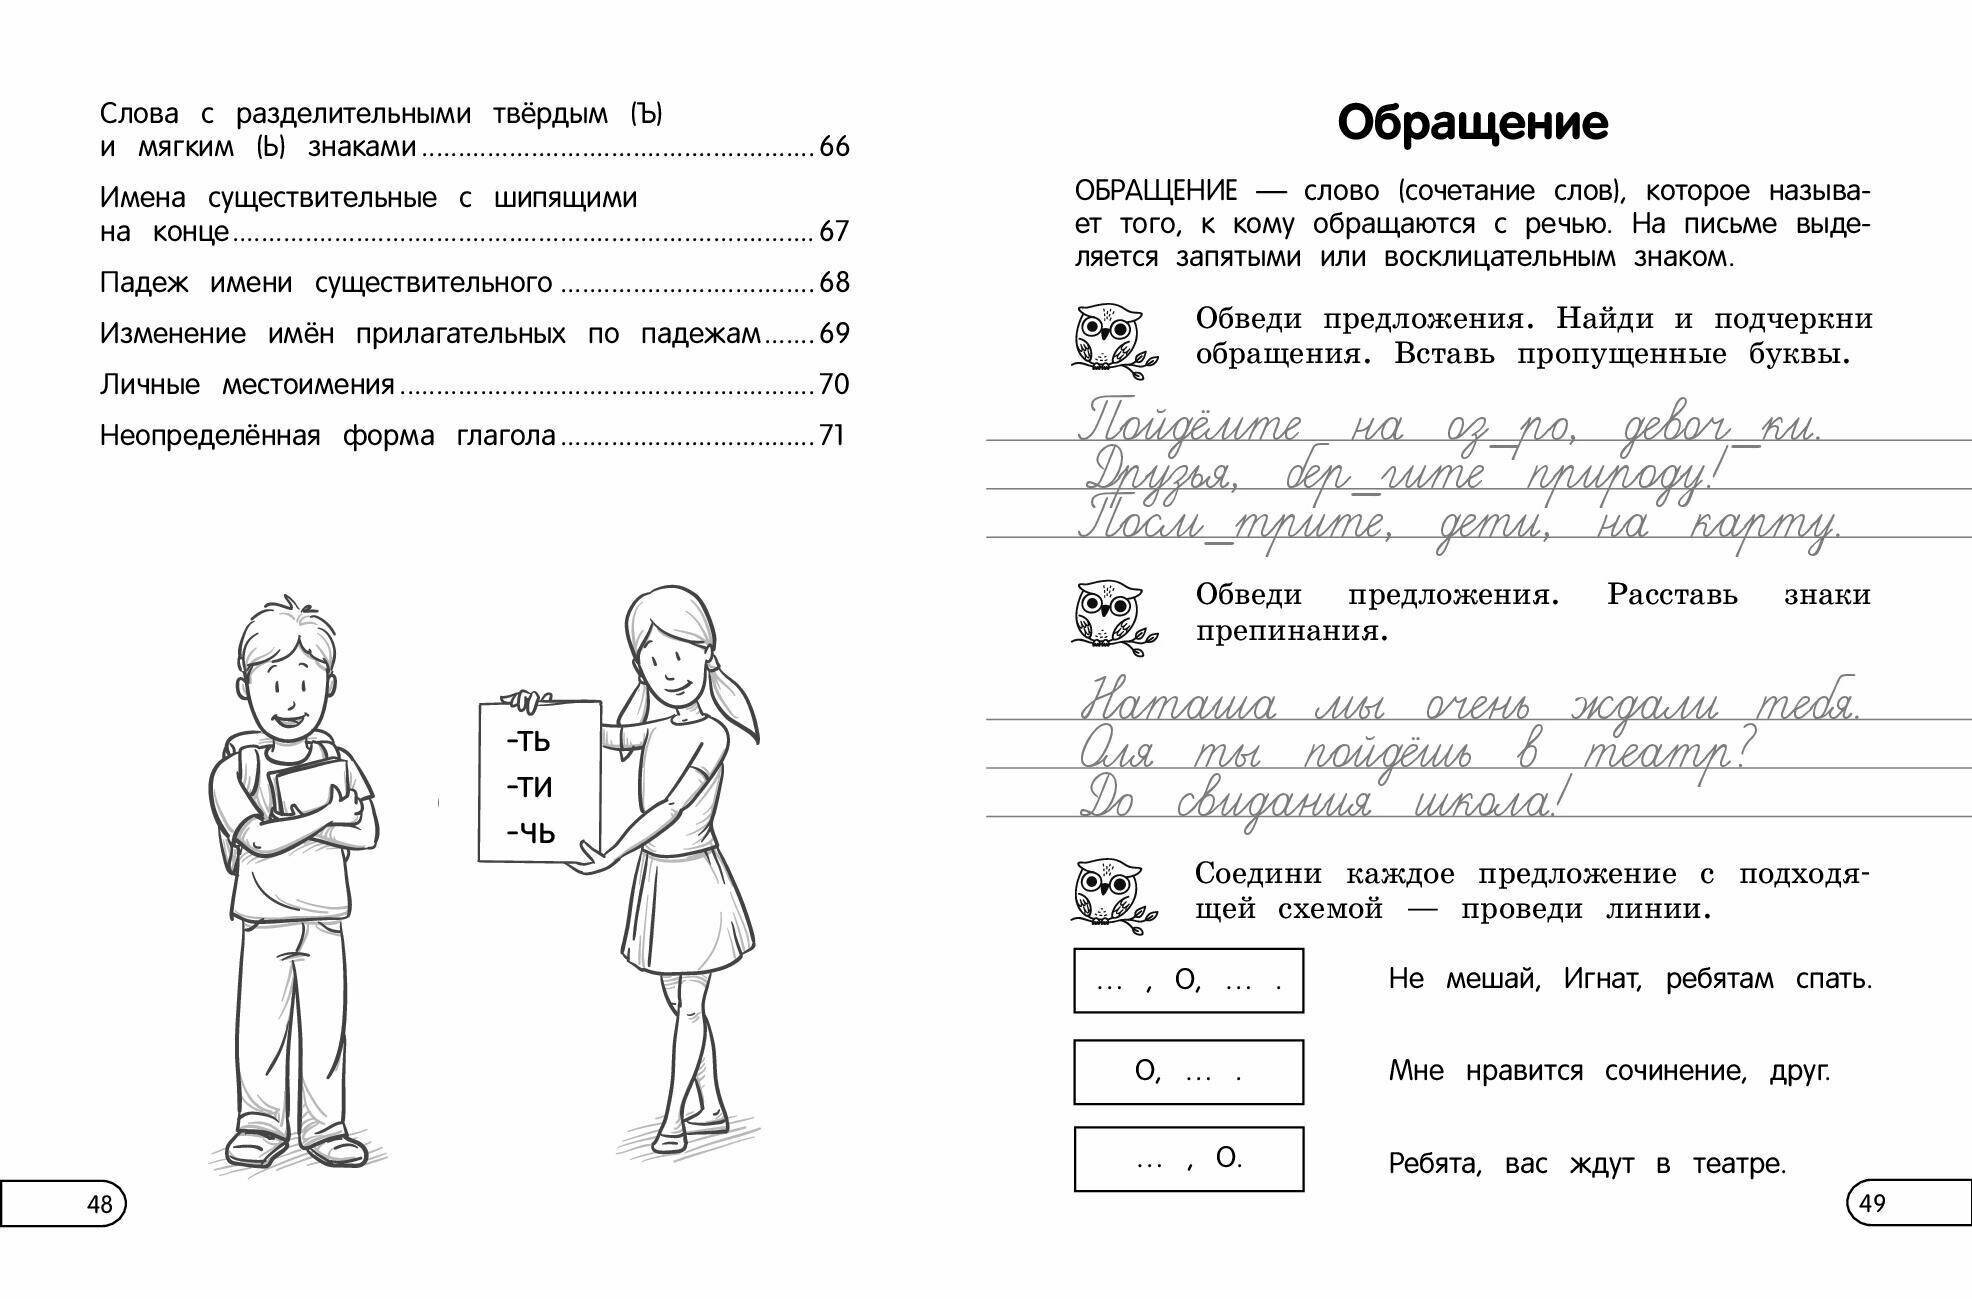 Слова с разделительными твёрдым (Ъ)
и мягким (Ь) знаками ................................................ 66
Имена существительные с шипящими
на конце ....................................................................... 67
Падеж имени существительного ............................... 68
Изменение имён прилагательных по падежам ....... 69
Личные местоимения ................................................... 70
Неопределённая форма глагола ............................... 71
-ТЬ
-ТИ
-ЧЬ
48
Обращение
ОБРАЩЕНИЕ — слово (сочетание слов), которое называ-
ет того, к кому обращаются с речью. На письме выде-
ляется запятыми или восклицательным знаком.
Обведи предложения. Найди и подчеркни
обращения. Вставь пропущенные буквы.
Пойдёмте на оз_ро, девоч_ки.
Друзья, бер_гите природу!
Посм_трите, дети, на карту.
Обведи предложения. Расставь знаки
препинания.
Наташа мы очень ждали тебя.
Оля ты пойдёшь в театр?
До свидания школа!
Соедини каждое предложение с подходя-
щей схемой — проведи линии.
... , О, ... .
Не мешай, Игнат, ребятам спать.
О, ... .
Мне нравится сочинение, друг.
... , О.
Ребята, вас ждут в театре.
49